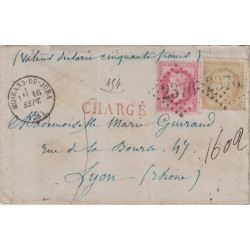 (Valeur déclarée cinquante francs)
MOIRANS-DU-JURA
16
SEPT.
454
2376
CHARGÉ
Mademoiselle Marie Guiraud
rue de la Bourse 47.
Lyon (Rhône)
1602